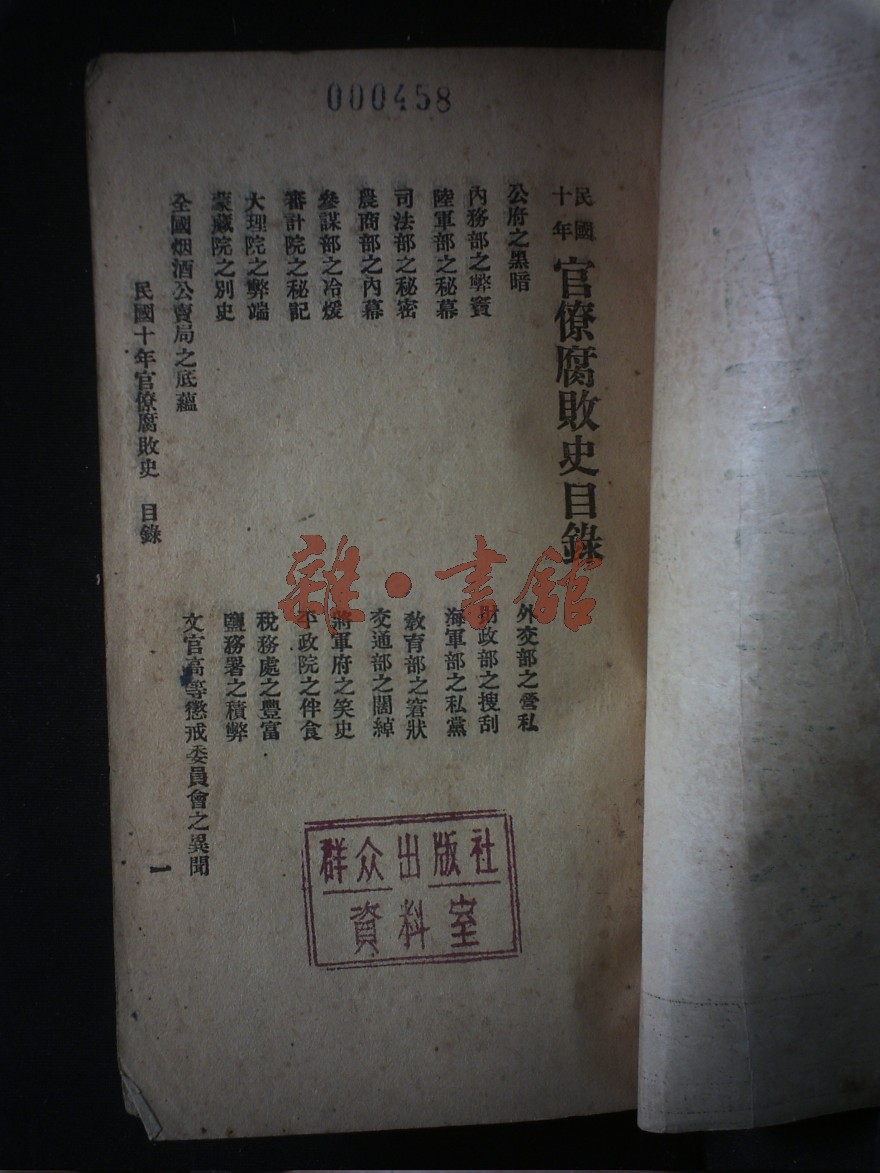 000458
民國十年 官僚腐敗史目錄
公府之黑暗
外交部之營私
內務部之弊竇
財政部之搜刮
陸軍部之秘幕
海軍部之私黨
司法部之秘密
教育部之窘狀
農商部之內幕
交通部之闊綽
參謀部之冷煖
將軍府之笑史
審計院之秘記
平政院之伴食
大理院之弊端
稅務處之豐富
蒙藏院之別史
鹽務署之積弊
全國烟酒公賣局之底蘊
文官高等懲戒委員會之異聞
民國十年官僚腐敗史 目錄
一
雜·書館
群众出版社
資料室